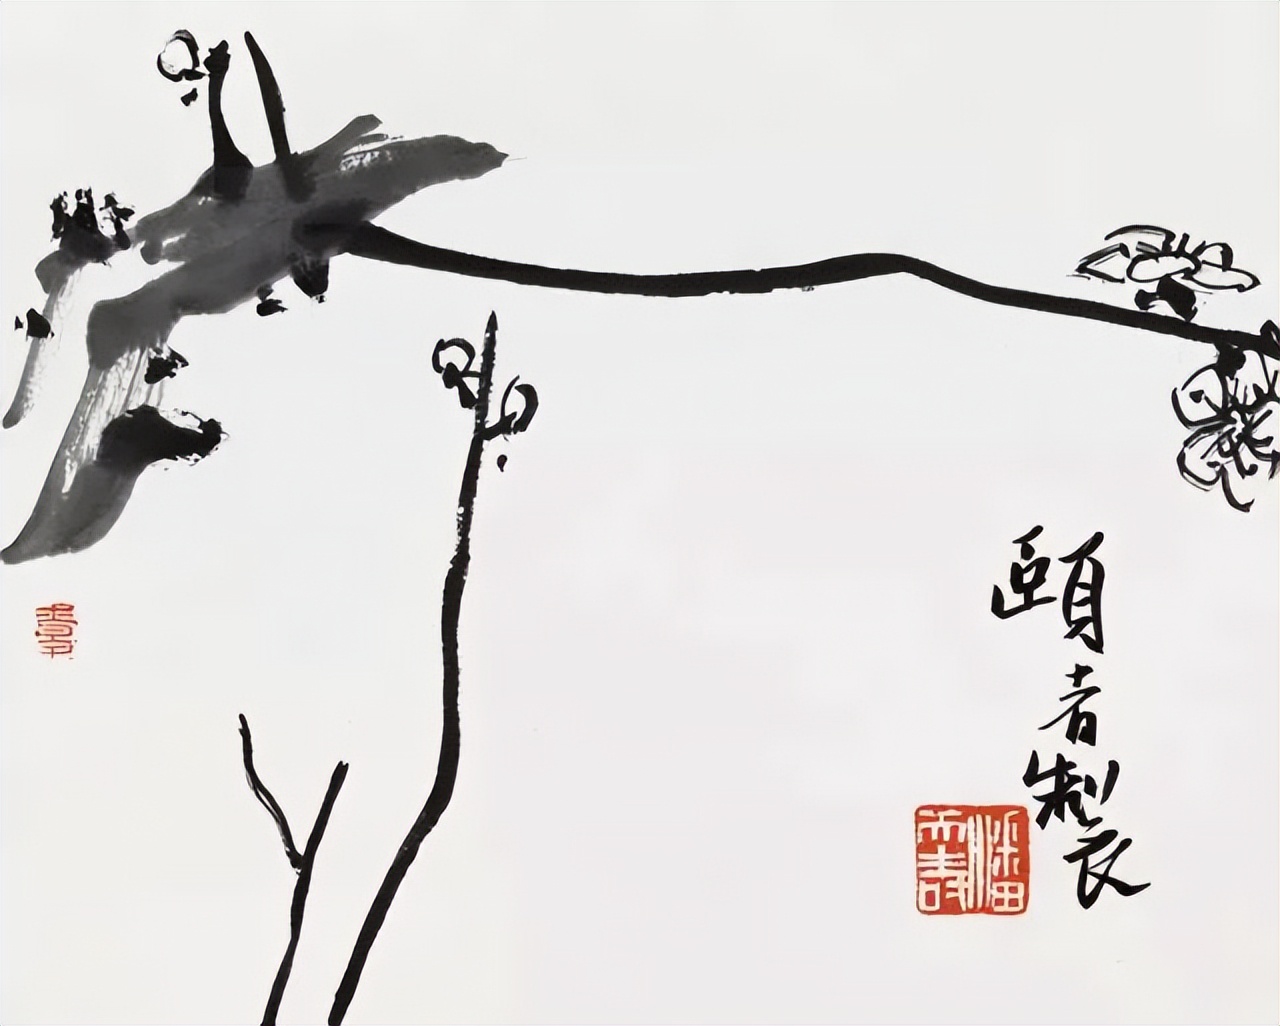 頤者製
潘天壽